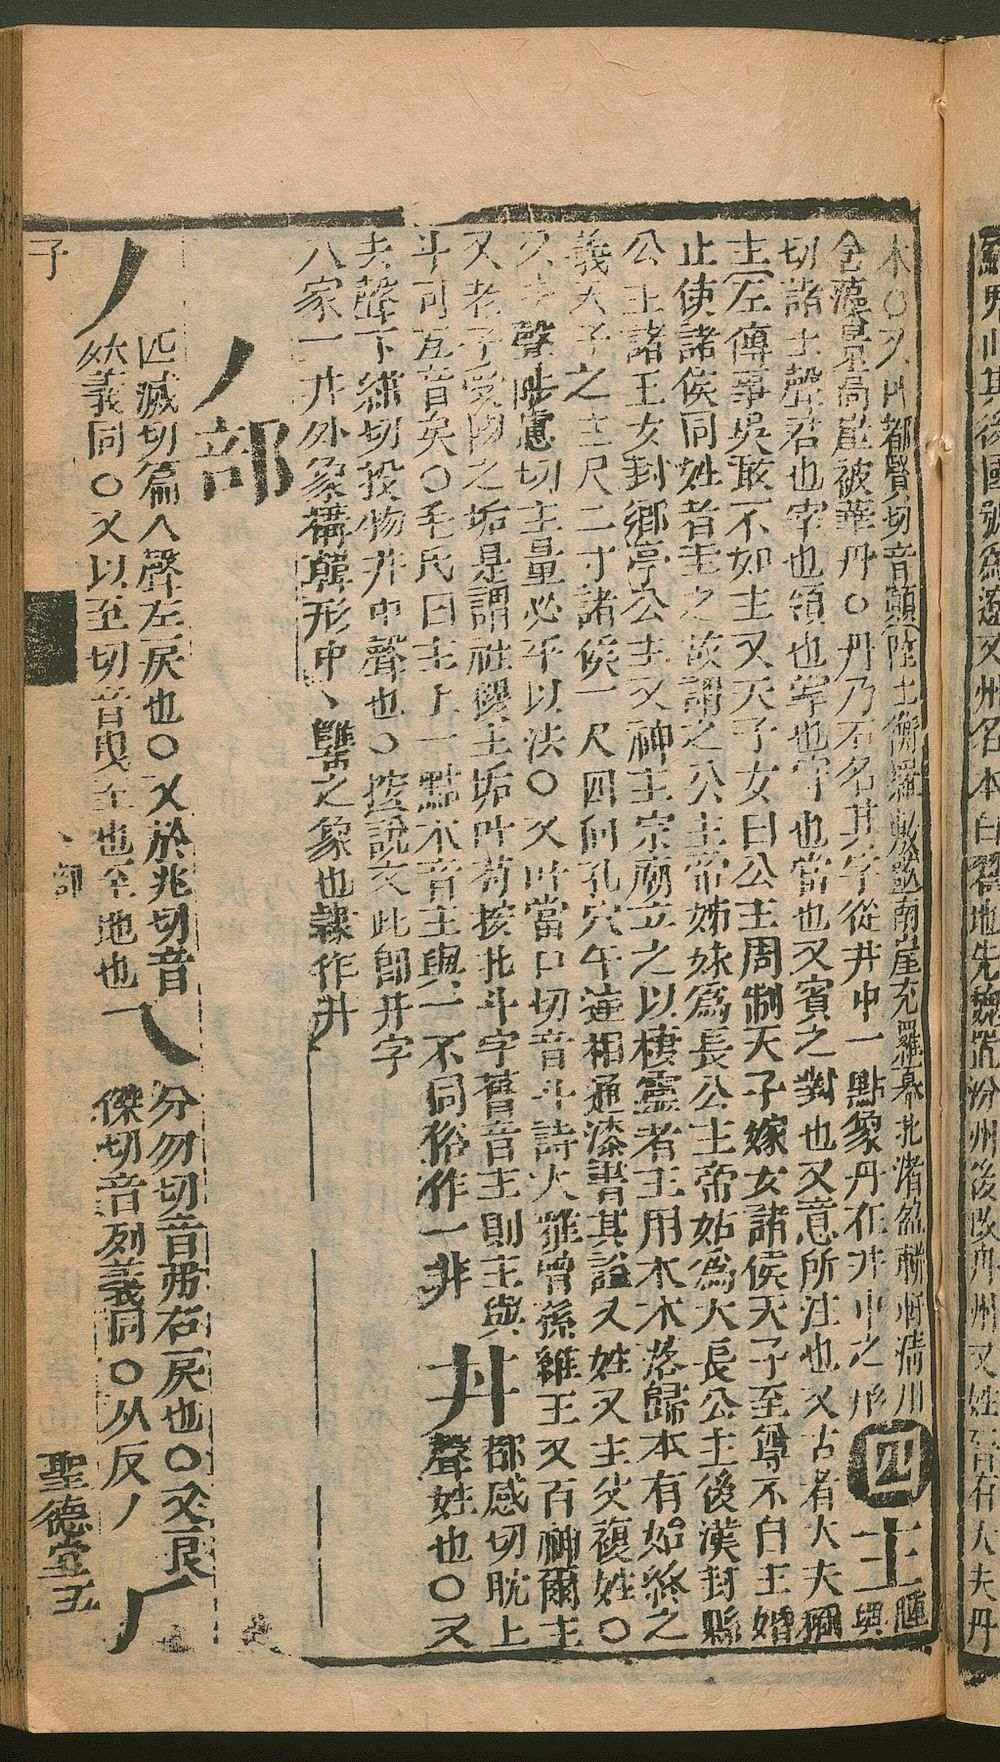 木〇又叶都賢切音顛陸士衡羅敷豔南崖充羅幕北渚盈軿軒清川
含藻景高崖被華丹〇丹乃石名其字從井中一點象丹在井中之形 四 主 腫與
切諸上聲君也宰也領也掌也守也當也又賓之對也又意所注也又古者大夫稱
主左傳事吳敢不如主又天子女曰公主周制天子嫁女諸侯天子至尊不自主婚
止使諸侯同姓者主之故謂之公主帝姊妹為長公主帝姑為大長公主後漢封縣
公主諸王女封鄉亭公主又神主宗廟立之以棲靈者主用木木落歸本有始終之
義天子之主尺二寸諸侯一尺四向孔穴午達相通漆書其諡又姓又主父複姓〇
又去聲陟慮切主量必平以法〇又叶當口切音斗詩大雅曾孫維王又百神爾主
又老子受國之垢是謂社稷主垢叶苟按北斗字舊音主則主與
斗可互音矣〇毛氏曰主上一點本音主與一不同俗作一非 丼 都感切耽上
聲姓也〇又
去聲下緣切投物井中聲也〇按說文此卽井字
八家一井外象構韓形中丶罋之象也隸作井
丿部
丿 匹滅切篇入聲左戾也〇又於兆切音
㕁義同〇又以至切音曳至也至地也 乀 分勿切音弗右戾也〇又良
傑切音列義同〇从反丿 𠂆
子 丶部 聖德堂五